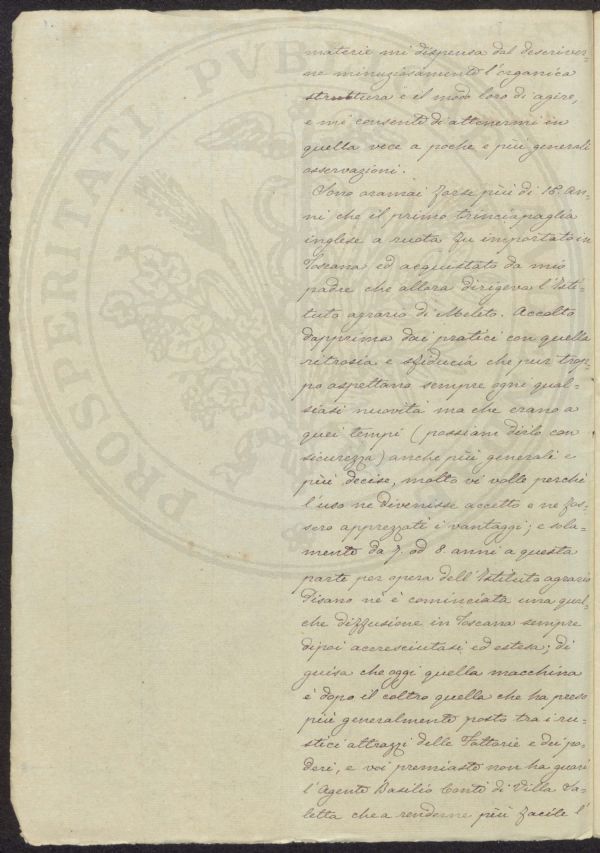 materie mi dispensa dal descriver-
ne minuziosamente l'organica
struttura e il modo loro di agire,
e mi consente di attenermi in
quella vece a poche e più generali
osservazioni.
Sono oramai forse più di 18. an-
ni che il primo trinciapaglia
inglese a ruota fu importato in
Toscana ed acquistato da mio
padre che allora dirigeva l'Isti-
tuto agrario di Meleto. Accolto
dapprima dai pratici con quella
ritrosia e sfiducia che pur trop-
po aspettano sempre ogni qual-
siasi nuovità ma che erano a
quei tempi (possiam dirlo con
sicurezza) anche più generali e
più decise, molto vi volle perché
l'uso ne divenisse accetto e ne fos-
sero apprezzati i vantaggi; e sola-
mente da 7. od 8. anni a questa
parte per opera dell'Istituto agrario
Pisano ne è cominciata una qual-
che diffusione in Toscana sempre
dipoi accresciutasi ed estesa; di
guisa che oggi quella macchina
è dopo il coltro quella che ha preso
più generalmente posto tra i ru-
stici attrazzi delle Fattorie e dei po-
deri, e voi premiaste non ha guari
l'Agente Basilio Conti di Villa Sa-
letta che a renderne più facile l'
PROSPERITATI PVBL